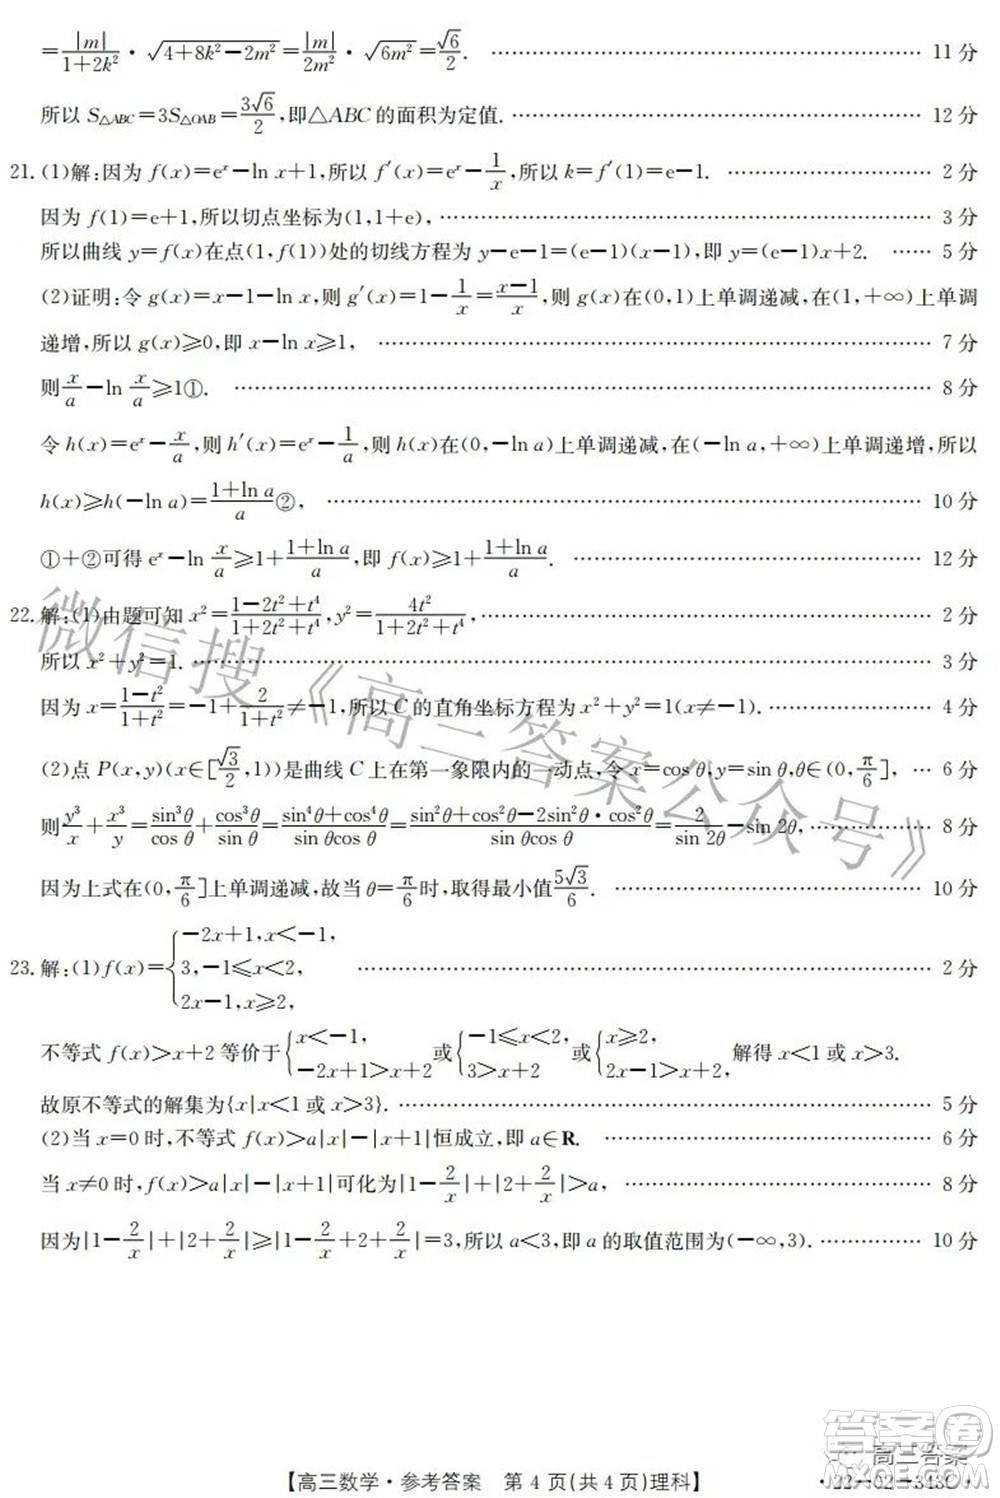 =|m|/(1+2k²)·√(4+8k²−2m²)=|m|/(2m²)·√(6m²)=√6/2. …… 11 分
所以 S△ABC=3S△OAB=3√6/2,即△ABC 的面积为定值. …… 12 分
21. (1)解:因为 f(x)=eˣ−ln x+1,所以 f′(x)=eˣ−1/x,所以 k=f′(1)=e−1. …… 2 分
因为 f(1)=e+1,所以切点坐标为(1,1+e), …… 3 分
所以曲线 y=f(x)在点(1,f(1))处的切线方程为 y−e−1=(e−1)(x−1),即 y=(e−1)x+2. …… 5 分
(2)证明:令 g(x)=x−1−ln x,则 g′(x)=1−1/x=(x−1)/x,则 g(x)在(0,1)上单调递减,在(1,+∞)上单调
递增,所以 g(x)≥0,即 x−ln x≥1, …… 7 分
则 x/a−ln x/a≥1①. …… 8 分
令 h(x)=eˣ−x/a,则 h′(x)=eˣ−1/a,则 h(x)在(0,−ln a)上单调递减,在(−ln a,+∞)上单调递增,所以
h(x)≥h(−ln a)=(1+ln a)/a②, …… 10 分
①+②可得 eˣ−ln x/a≥1+(1+ln a)/a,即 f(x)≥1+(1+ln a)/a. …… 12 分
22. 解:(1)由题可知 x²=(1−2t²+t⁴)/(1+2t²+t⁴),y²=4t²/(1+2t²+t⁴), …… 2 分
所以 x²+y²=1. …… 3 分
因为 x=(1−t²)/(1+t²)=−1+2/(1+t²)≠−1,所以 C 的直角坐标方程为 x²+y²=1(x≠−1). …… 4 分
(2)点 P(x,y)(x∈[√3/2,1))是曲线 C 上在第一象限内的一动点,令 x=cos θ,y=sin θ,θ∈(0,π/6], … 6 分
则 y³/x+x³/y=sin³θ/cos θ+cos³θ/sin θ=(sin⁴θ+cos⁴θ)/(sin θcos θ)=(sin²θ+cos²θ−2sin²θ·cos²θ)/(sin θcos θ)=2/(sin 2θ)−sin 2θ, …… 8 分
因为上式在(0,π/6]上单调递减,故当 θ=π/6时,取得最小值5√3/6. …… 10 分
23. 解:(1)f(x)={−2x+1,x<−1, 3,−1≤x<2, 2x−1,x≥2, …… 2 分
不等式 f(x)>x+2 等价于{x<−1, −2x+1>x+2 或{−1≤x<2, 3>x+2 或{x≥2, 2x−1>x+2, 解得 x<1 或 x>3.
故原不等式的解集为{x|x<1 或 x>3}. …… 5 分
(2)当 x=0 时,不等式 f(x)>a|x|−|x+1|恒成立,即 a∈R. …… 6 分
当 x≠0 时,f(x)>a|x|−|x+1|可化为|1−2/x|+|2+2/x|>a, …… 8 分
因为|1−2/x|+|2+2/x|≥|1−2/x+2+2/x|=3,所以 a<3,即 a 的取值范围为(−∞,3). …… 10 分
微信搜《高三答案公众号》
答案圈
高三答案
【高三数学·参考答案 第 4 页(共 4 页)理科】
·22−02−343C·